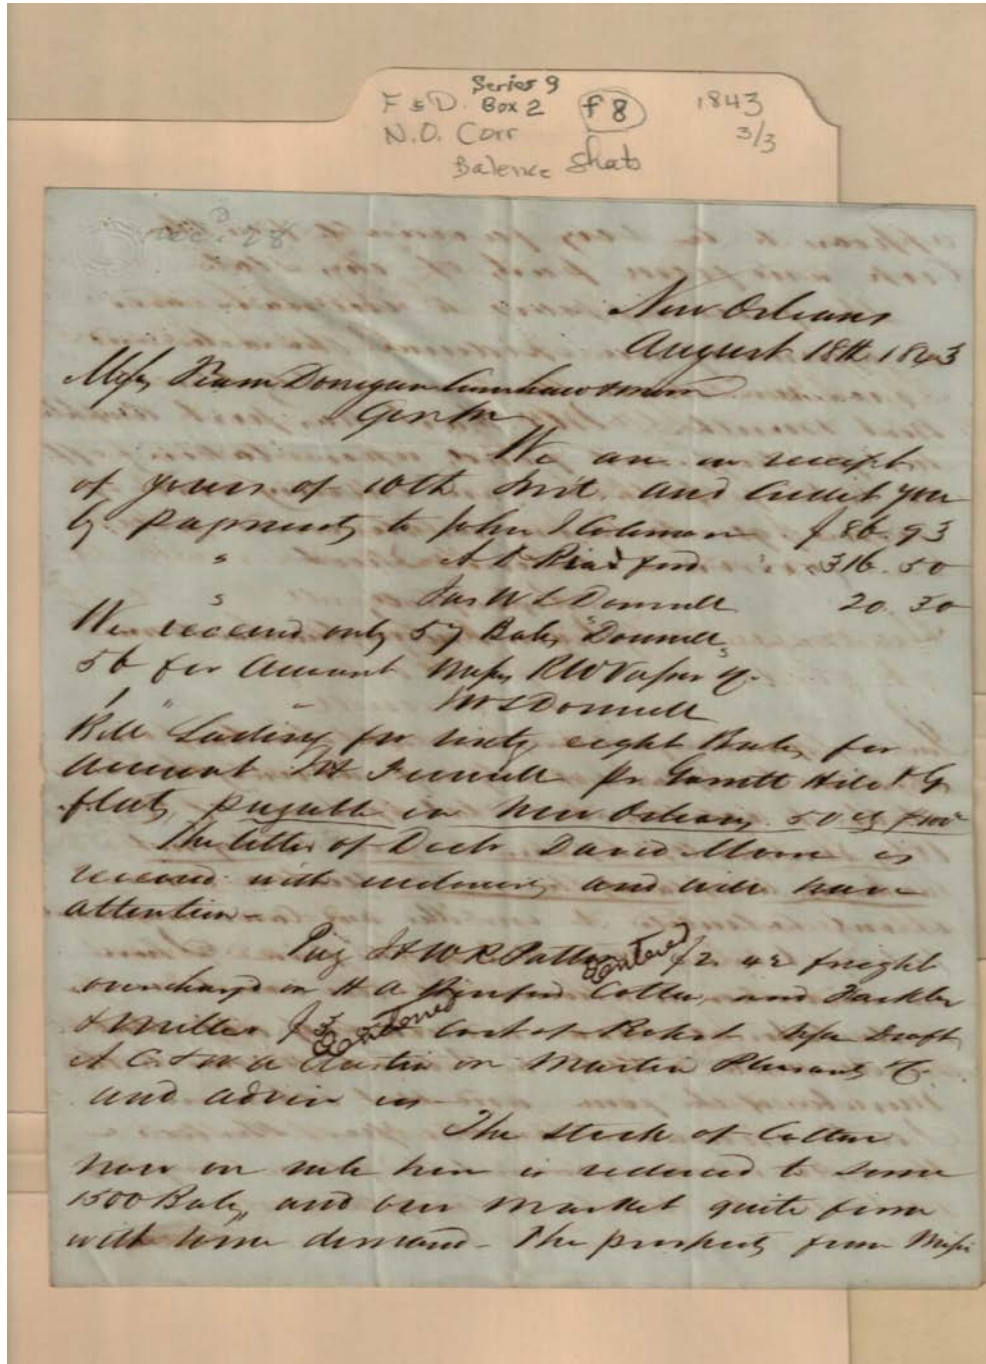 Series 9
F & D. Box 2 f 8 1843
N.O. Corr 3/3
Balence Shats
New Orleans
August 18th 1843
Messrs Donegan
Gentn
We are in receipt
of yours of 10th Inst. and Credit you
by payments to John J Coleman $86.93
" A. Bradford " 316.50
" Jas W S Donnell 20.30
We received only 57 Bales "Donnell"
56 for Account Messrs R W Vasser &
1 " " J W S Donnell
Bill Lading for sixty eight Bales for
account Fennell pr Garrett Hile & G
flat, payable in New Orleans 50
The letter of Doctr David Moore is
received with and will have
attention -
J & W R Patton Entered $2.42 freight
overcharged on H A Cotton, and Fackler
& Miller $3 Entered Cost of Draft
A C & W A Austin on Martin Pleasants &
and advise us
The stock of Cotton
now on sale here is reduced to some
1500 Bales, and our market quite firm
with some demand - The prospects from Missi